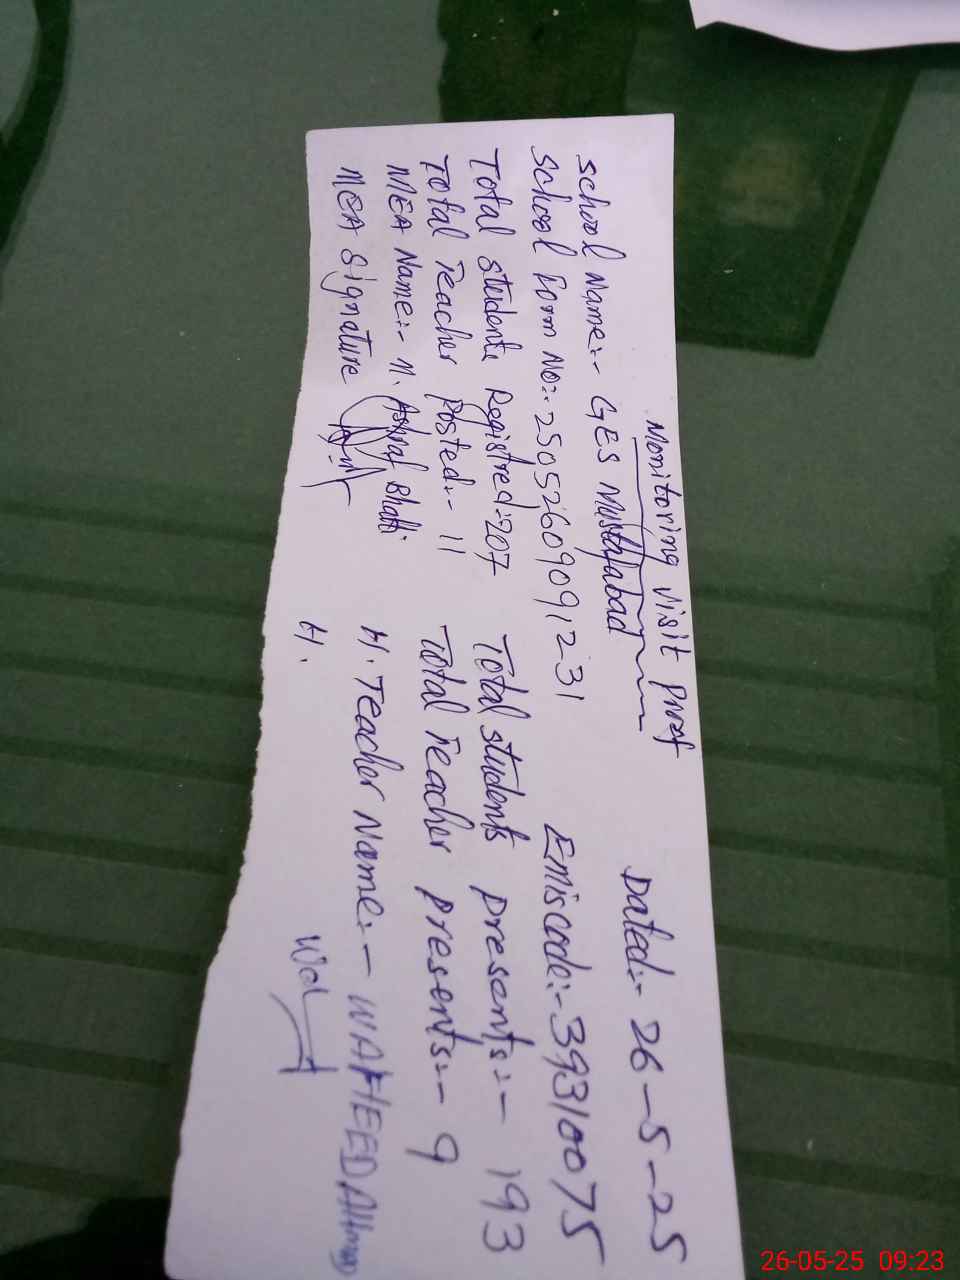 Monitoring visit Proof
Dated:- 26-5-25
School Name:- GES Mustafabad
School Form No:- 25052609091231 Emiscode:- 39310075
Total students Registred:- 207 Total students presents:- 193
Total Teacher Posted:- 11 Total Teacher presents:- 9
MEA Name:- M. Ashraf Bhatti H. Teacher Name:- WAHEED AHmad
MEA Signature H.
26-05-25 09:23